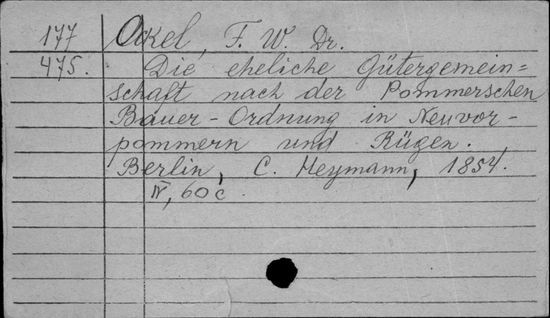 177 Ockel, F. W. Dr.
475. Die eheliche Gütergemein=
schaft nach der Pommerschen
Bauer-Ordnung in Neuvor-
pommern und Rügen.
Berlin, C. Heymann, 1854.
IV, 60 c.